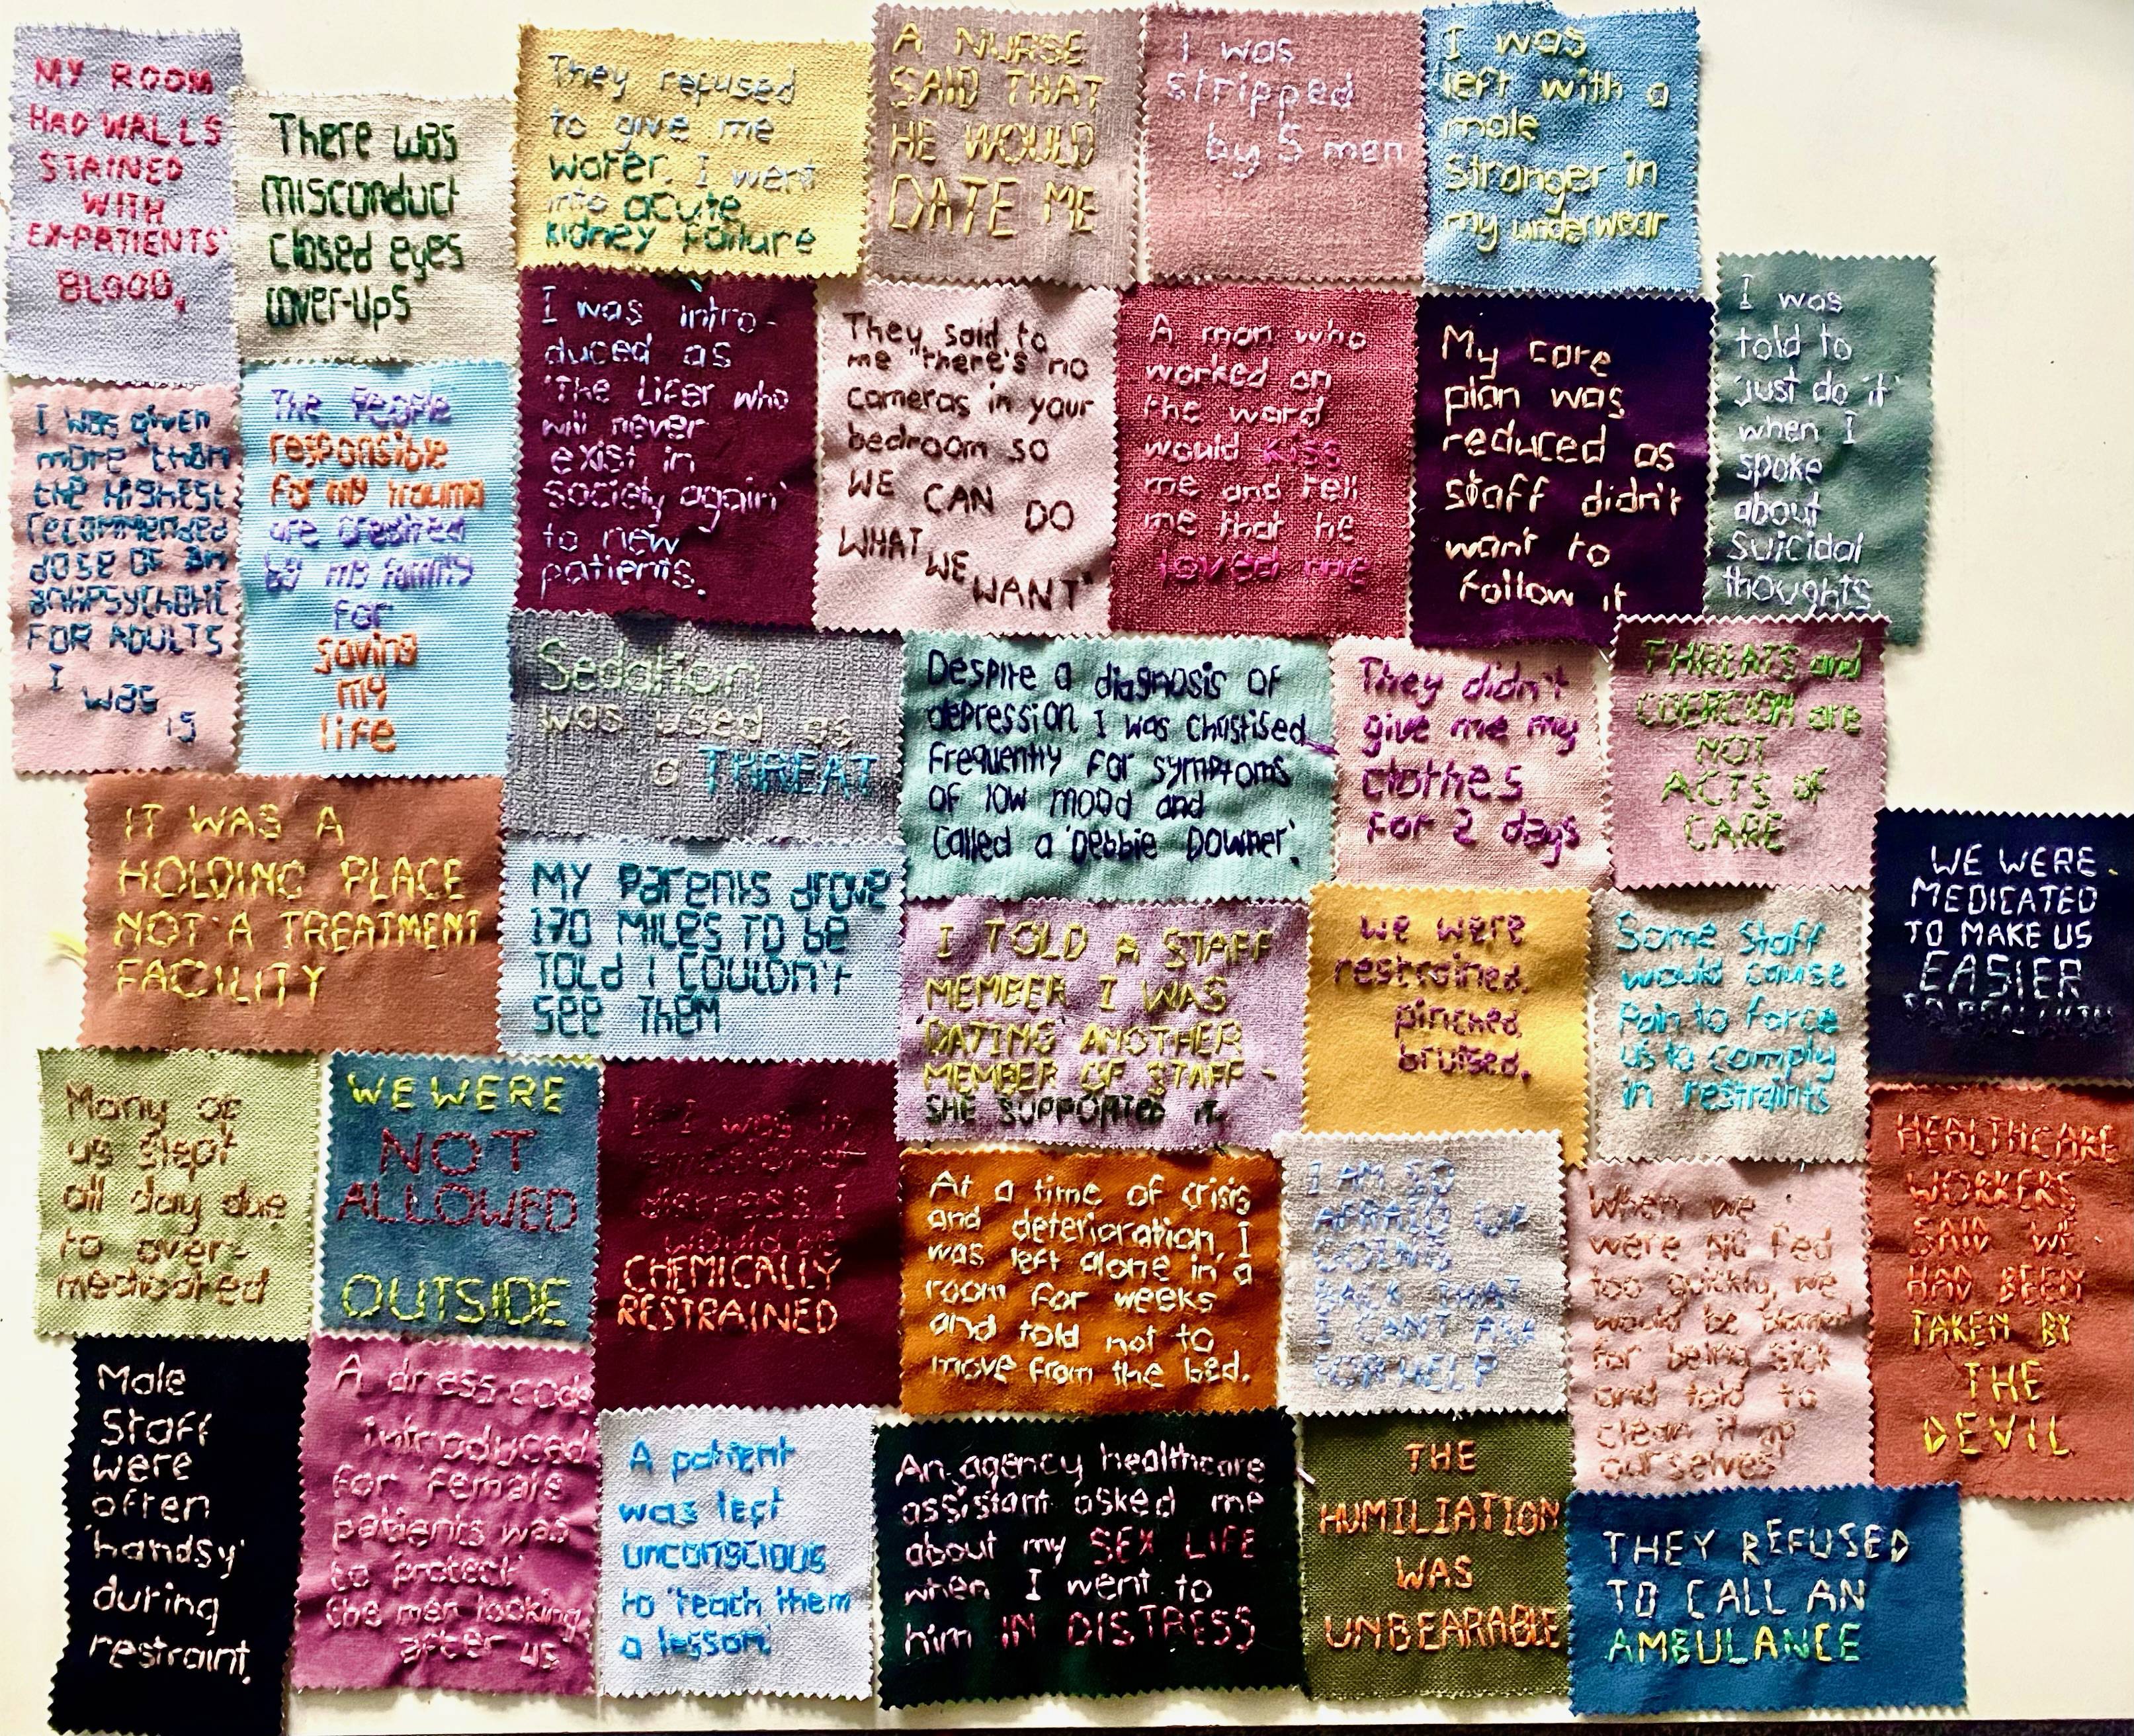 MY ROOM
HAD WALLS
STAINED
WITH
EX-PATIENTS'
BLOOD,
There was
misconduct
closed eyes
cover-ups
They refused
to give me
water. I went
into acute
kidney failure
A NURSE
SAID THAT
HE WOULD
DATE ME
I was
stripped
by 5 men
I was
left with a
male
stranger in
my underwear
I was given
more than
the highest
recommended
dose of an
antipsychotic
FOR ADULTS
I was 15
The People
responsible
for my trauma
are credited
by my family
for
saving
my
life
I was intro-
duced as
'The Lifer who
will never
exist in
society again'
to new
patients.
They said to
me "there's no
cameras in your
bedroom so
WE CAN DO
WHAT WE WANT"
A man who
worked on
the ward
would kiss
me and tell
me that he
loved me
My care
plan was
reduced as
staff didn't
want to
follow it
I was
told to
'just do it'
when I
spoke
about
suicidal
thoughts
Sedation
was used as
a THREAT
Despite a diagnosis of
depression, I was chastised
frequently for symptoms
of low mood and
called a 'Debbie Downer'.
They didn't
give me my
clothes
for 2 days
THREATS and
COERCION are
NOT
ACTS of
CARE
IT WAS A
HOLDING PLACE
NOT A TREATMENT
FACILITY
MY Parents drove
170 MILES TO be
TOLD I COULDN'T
SEE THEM
I TOLD A STAFF
MEMBER I WAS
'DATING' ANOTHER
MEMBER OF STAFF -
SHE SUPPORTED IT.
we were
restrained.
pinched.
bruised.
Some staff
would cause
pain to force
us to comply
in restraints
WE WERE
MEDICATED
TO MAKE US
EASIER
Many of
us slept
all day due
to over-
medicated
WE WERE
NOT
ALLOWED
OUTSIDE
If I was in
emotional
distress I
would be
CHEMICALLY
RESTRAINED
At a time of crisis
and deterioration, I
was left alone in a
room for weeks
and told not to
move from the bed.
I AM SO
AFRAID OF
GOING
BACK THAT
I CAN'T ASK
FOR HELP
When we
were NG fed
too quickly, we
would be blamed
for being sick
and told to
clean it up
ourselves
HEALTHCARE
WORKERS
SAID WE
HAD BEEN
TAKEN BY
THE
DEVIL
Male
staff
were
often
'handsy'
during
restraint.
A dress code
introduced
for female
patients was
to 'protect'
the men looking
after us
A patient
was left
unconscious
to 'teach them
a lesson'
An agency healthcare
assistant asked me
about my SEX LIFE
when I went to
him IN DISTRESS
THE
HUMILIATION
WAS
UNBEARABLE
THEY REFUSED
TO CALL AN
AMBULANCE